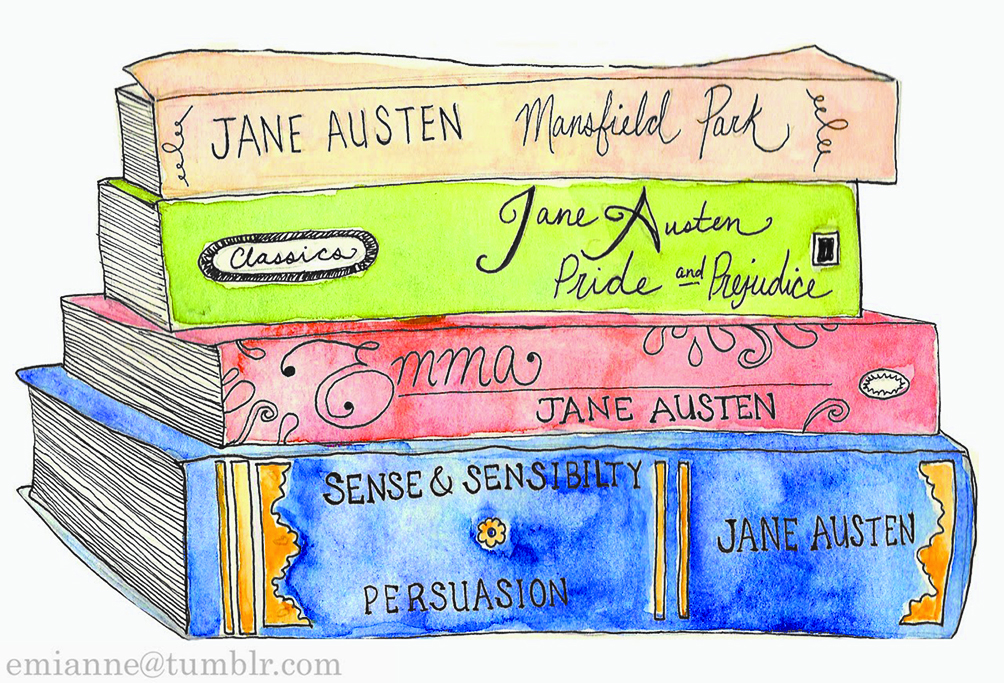 JANE AUSTEN Mansfield Park
Jane Austen
Classics
Pride and Prejudice
Emma
JANE AUSTEN
SENSE & SENSIBILTY
JANE AUSTEN
PERSUASION
emianne@tumblr.com